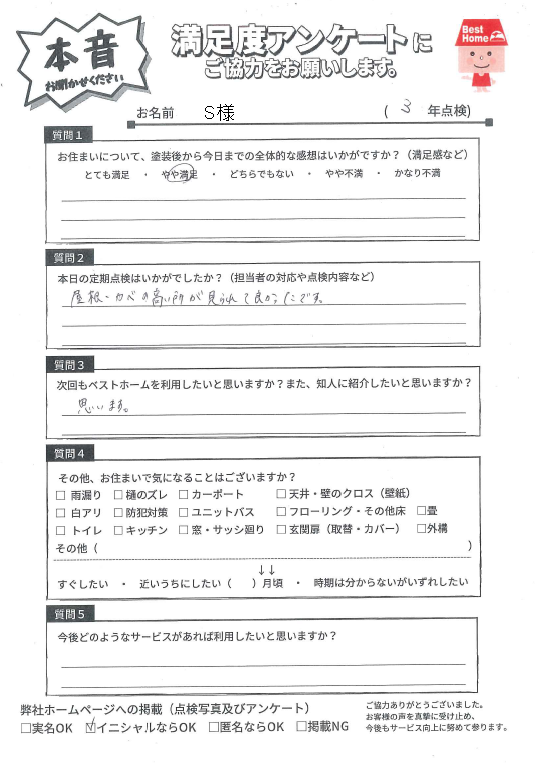 本音
お聞かせください
満足度アンケートに
ご協力をお願いします。
Best
Home
お名前 S様 ( 3 年点検)
質問1
お住まいについて、塗装後から今日までの全体的な感想はいかがですか？（満足感など）
とても満足 ・ やや満足 ・ どちらでもない ・ やや不満 ・ かなり不満
質問2
本日の定期点検はいかがでしたか？（担当者の対応や点検内容など）
屋根・カベの高い所が見られて良かったです。
質問3
次回もベストホームを利用したいと思いますか？また、知人に紹介したいと思いますか？
思います。
質問4
その他、お住まいで気になることはございますか？
□ 雨漏り □ 樋のズレ □ カーポート □ 天井・壁のクロス（壁紙）
□ 白アリ □ 防犯対策 □ ユニットバス □ フローリング・その他床 □畳
□ トイレ □ キッチン □ 窓・サッシ廻り □ 玄関扉（取替・カバー） □外構
その他（ ）
↓↓
すぐしたい ・ 近いうちにしたい（ ）月頃 ・ 時期は分からないがいずれしたい
質問5
今後どのようなサービスがあれば利用したいと思いますか？
弊社ホームページへの掲載（点検写真及びアンケート）
□実名OK ☑イニシャルならOK □匿名ならOK □掲載NG
ご協力ありがとうございました。
お客様の声を真摯に受け止め、
今後もサービス向上に努めて参ります。